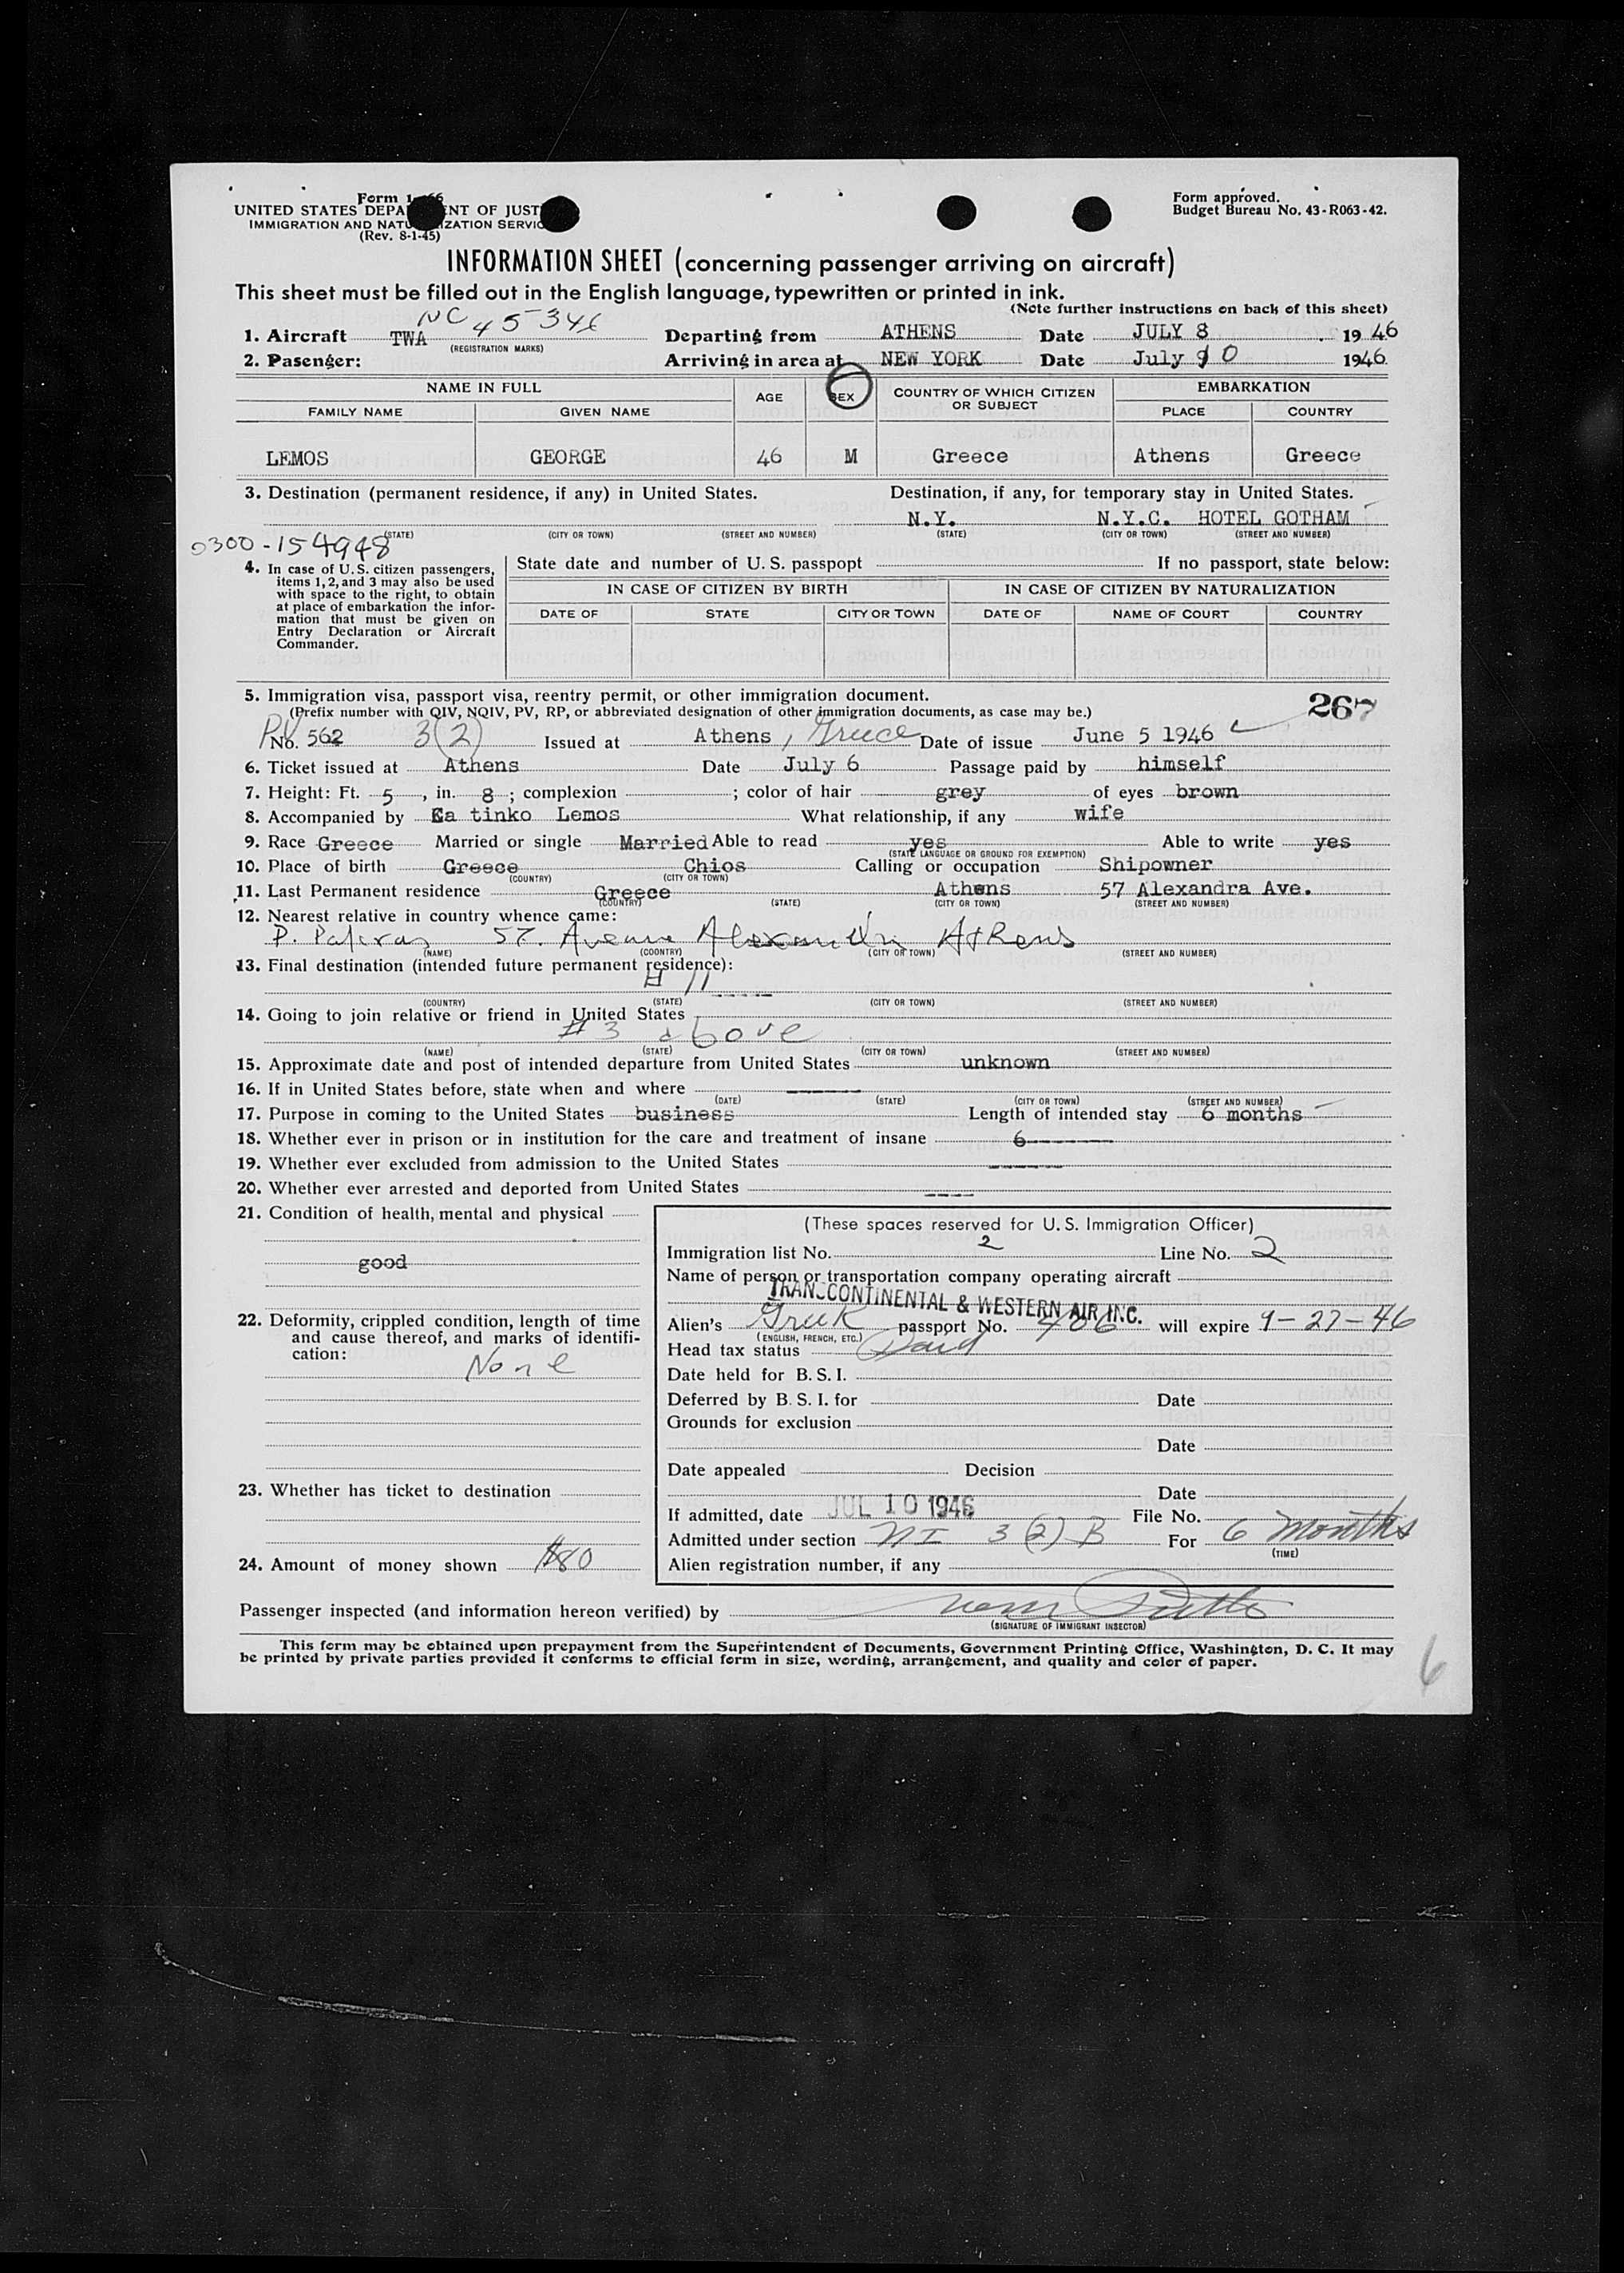 Form approved.
UNITED STATES DEPA NT OF JUST
Budget Bureau No. 43-R063-42.
IMMIGRATION AND NATU IZATION SERVIC
(Rev. 8-1-45)
INFORMATION SHEET (concerning passenger arriving on aircraft)
This sheet must be filled out in the English language, typewritten or printed in ink.
(Note further instructions on back of this sheet)
NC 45346
1. Aircraft TWA Departing from ATHENS Date JULY 8 1946
(REGISTRATION MARKS)
2. Pasenger: Arriving in area at NEW YORK Date July 10 1946
NAME IN FULL AGE SEX COUNTRY OF WHICH CITIZEN OR SUBJECT EMBARKATION
FAMILY NAME GIVEN NAME PLACE COUNTRY
LEMOS GEORGE 46 M Greece Athens Greece
3. Destination (permanent residence, if any) in United States. Destination, if any, for temporary stay in United States.
N.Y. N.Y.C. HOTEL GOTHAM
(STATE) (CITY OR TOWN) (STREET AND NUMBER) (STATE) (CITY OR TOWN) (STREET AND NUMBER)
0300-154948
4. In case of U.S. citizen passengers,
items 1, 2, and 3 may also be used
with space to the right, to obtain
at place of embarkation the infor-
mation that must be given on
Entry Declaration or Aircraft
Commander.
State date and number of U.S. passpopt If no passport, state below:
IN CASE OF CITIZEN BY BIRTH IN CASE OF CITIZEN BY NATURALIZATION
DATE OF STATE CITY OR TOWN DATE OF NAME OF COURT COUNTRY
5. Immigration visa, passport visa, reentry permit, or other immigration document.
267
(Prefix number with QIV, NQIV, PV, RP, or abbreviated designation of other immigration documents, as case may be.)
PV No. 562 3(2) Issued at Athens, Greece Date of issue June 5 1946
6. Ticket issued at Athens Date July 6 Passage paid by himself
7. Height: Ft. 5, in. 8; complexion ; color of hair grey of eyes brown
8. Accompanied by Ka tinko Lemos What relationship, if any wife
9. Race Greece Married or single Married Able to read yes Able to write yes
(STATE LANGUAGE OR GROUND FOR EXEMPTION)
10. Place of birth Greece Chios Calling or occupation Shipowner
(COUNTRY) (CITY OR TOWN)
11. Last Permanent residence Greece Athens 57 Alexandra Ave.
(COUNTRY) (STATE) (CITY OR TOWN) (STREET AND NUMBER)
12. Nearest relative in country whence came:
57. Avenue Athens
(NAME) (COONTRY) (CITY OR TOWN) (STREET AND NUMBER)
13. Final destination (intended future permanent residence):
# 11
(COUNTRY) (STATE) (CITY OR TOWN) (STREET AND NUMBER)
14. Going to join relative or friend in United States
#3 above
(NAME) (STATE) (CITY OR TOWN) (STREET AND NUMBER)
15. Approximate date and post of intended departure from United States unknown
16. If in United States before, state when and where
(DATE) (STATE) (CITY OR TOWN) (STREET AND NUMBER)
17. Purpose in coming to the United States business Length of intended stay 6 months
18. Whether ever in prison or in institution for the care and treatment of insane 6
19. Whether ever excluded from admission to the United States
20. Whether ever arrested and deported from United States
21. Condition of health, mental and physical
good
22. Deformity, crippled condition, length of time
and cause thereof, and marks of identifi-
cation:
None
23. Whether has ticket to destination
24. Amount of money shown $80
(These spaces reserved for U.S. Immigration Officer)
Immigration list No. 2 Line No. 2
Name of person or transportation company operating aircraft
TRANSCONTINENTAL & WESTERN AIR INC.
Alien's Greek passport No. 406 will expire 9-27-46
(ENGLISH, FRENCH, ETC.)
Head tax status Paid
Date held for B.S.I.
Deferred by B.S.I. for Date
Grounds for exclusion
Date
Date appealed Decision
Date
If admitted, date JUL 10 1946 File No.
Admitted under section NI 3(2)B For 6 Months
(TIME)
Alien registration number, if any
Passenger inspected (and information hereon verified) by
(SIGNATURE OF IMMIGRANT INSECTOR)
This form may be obtained upon prepayment from the Superintendent of Documents, Government Printing Office, Washington, D. C. It may
be printed by private parties provided it conforms to official form in size, wording, arrangement, and quality and color of paper.
6